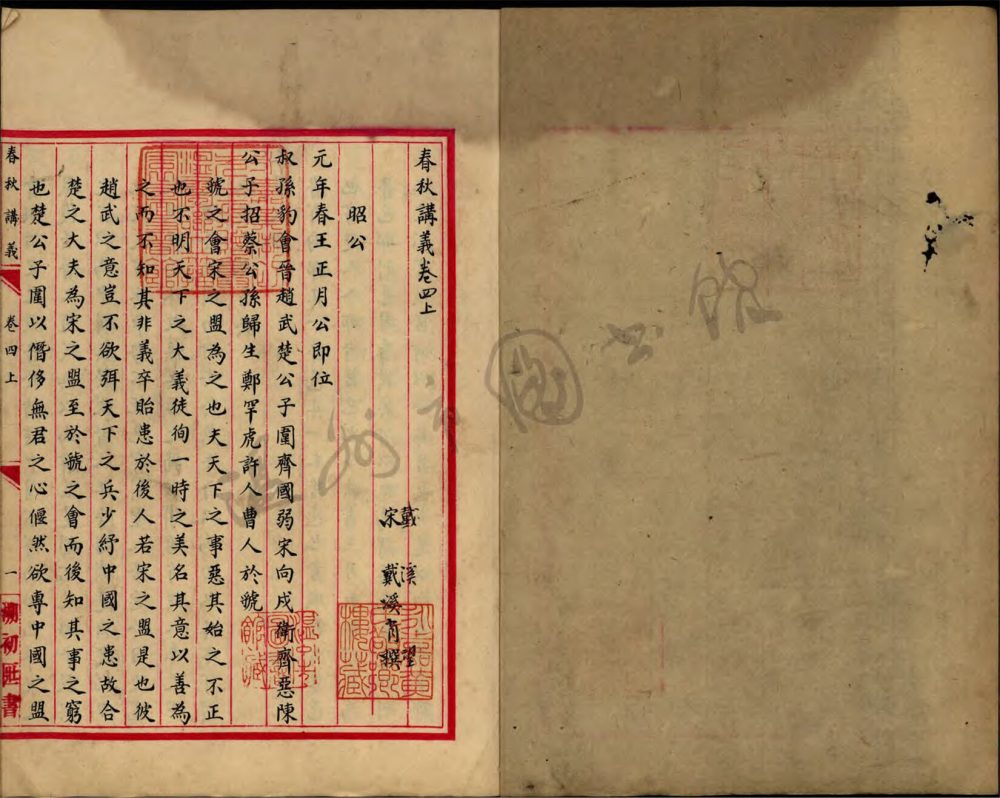 春秋講義卷四上
宋 戴溪肖望 撰
昭公
元年春王正月公即位
叔孫豹會晉趙武楚公子圍齊國弱宋向戌衛齊惡陳
公子招蔡公孫歸生鄭罕虎許人曹人於虢
虢之會宋之盟為之也夫天下之事惡其始之不正
也不明天下之大義徒徇一時之美名其意以善為
之而不知其非義卒貽患於後人若宋之盟是也彼
趙武之意豈不欲弭天下之兵少紓中國之患故合
楚之大夫為宋之盟至於虢之會而後知其事之窮
也楚公子圍以僭侈無君之心偃然欲專中國之盟
春秋講義 卷四上 一